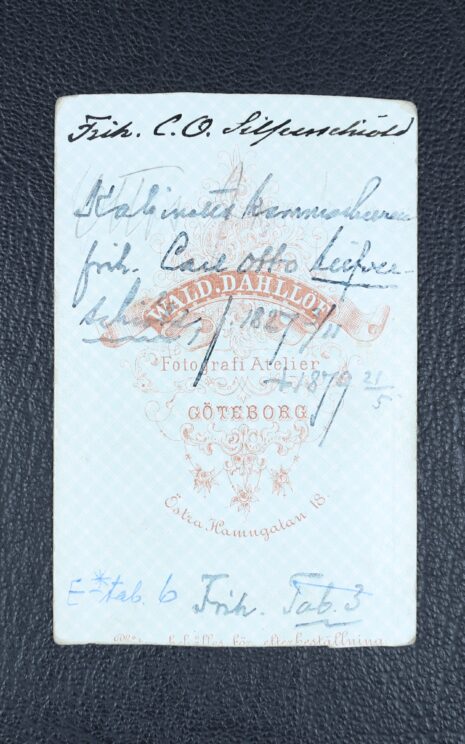 Frih. C. O. Silfverschiöld
Kabinettskammarherren
frih. Carl Otto Silfver-
schiöld, f. 1827
WALD. DAHLLÖF
Fotografi Atelier
+ 1879 21/5
GÖTEBORG
Östra Hamngatan 18.
tab. 6 Frih. Tab. 3
för efterbeställning